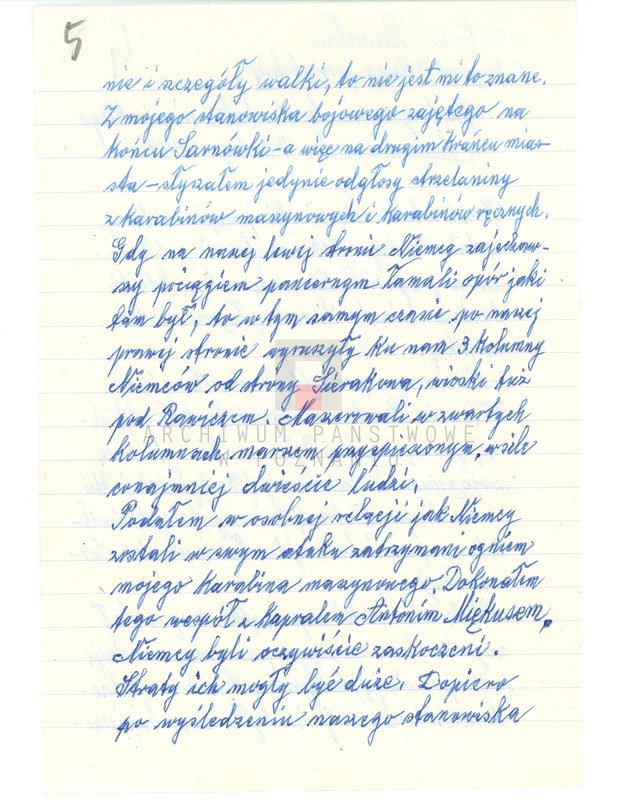 5
nie i szczegóły walki, to nie jest mi to znane.
Z mojego stanowiska bojowego zajętego na
końcu Sarnówki - a więc na drugim krańcu mia-
sta - słyszałem jedynie odgłosy strzelaniny
z karabinów maszynowych i karabinów ręcznych.
Gdy na naszej lewej stronie Niemcy zajechaw-
szy pociągiem pancernym łamali opór jaki
tam był, to w tym samym czasie po naszej
prawej stronie wyruszyły ku nam 3 kolumny
Niemców od strony Sierakowa, wioski tuż
pod Rawiczem. Maszerowali w zwartych
kolumnach marszem przyspieszonym, w sile
conajmniej dwieście ludzi.
ARCHIWUM PAŃSTWOWE
W POZNANIU
Podałem w osobnej relacji jak Niemcy
zostali w swym ataku zatrzymani ogniem
mojego karabina maszynowego. Dokonałem
tego wespół z kapralem Antonim Miękusem,
Niemcy byli oczywiście zaskoczeni.
Straty ich mogły być duże. Dopiero
po wyśledzeniu naszego stanowiska